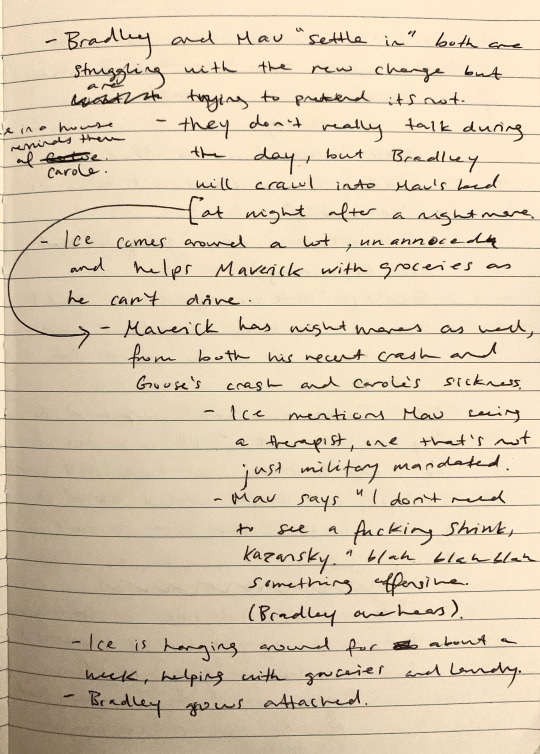 - Bradley and Mav "settle in" both are
struggling with the new change but
are
trying to pretend its not.
- they don't really talk during
e in a house
reminds them
of
carole.
the day, but Bradley
will crawl into Mav's bed
[at night after a nightmare.
- Ice comes around a lot, unannoced
and helps Maverick with groceries as
he can't drive.
- Maverick has nightmares as well,
from both his recent crash and
Goose's crash and Carole's sickness.
- Ice mentions Mav seeing
a therapist, one that's not
just military mandated.
- Mav says "I don't need
to see a fucking shrink,
Kazansky." blah blah blah
something offensive.
(Bradley overhears).
- Ice is hanging around for about a
week, helping with groceries and laundry.
- Bradley grows attached.